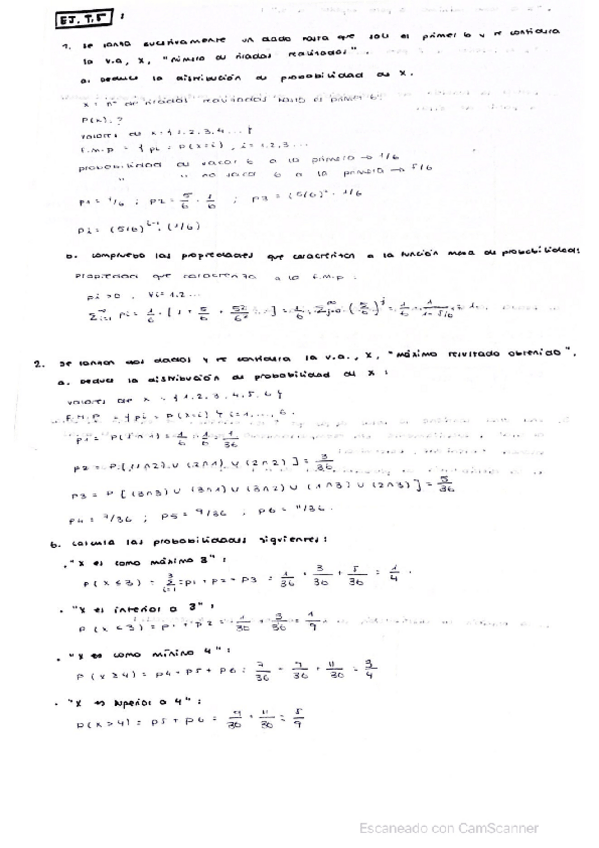 EJ. T.5 :
1. Se lanza sucesivamente un dado hasta que sale el primer 6 y se considera
la v.a, X, "número de tiradas realizadas".
a. Deduce la distribución de probabilidad de X.
X = nº de tiradas realizadas hasta el primer 6.
P(x).?
valores de x = { 1, 2, 3, 4 ... }
F.m.p = { pi = P(x=i) , i = 1, 2, 3 ...
probabilidad de sacar 6 a la primera → 1/6
" " no sacar 6 a la primera → 5/6
p1 = 1/6 ; p2 = 5/6 · 1/6 ; p3 = (5/6)² · 1/6
pi = (5/6)^i-1 · (1/6)
b. Comprueba las propiedades que caracterizan a la función masa de probabilidad:
Propiedad que caracteriza a la f.m.p :
pi > 0 , ∀i = 1, 2 ...
Σ pi = 1/6 · [ 1 + 5/6 + 5²/6² + ... ] = 1/6 · Σ (5/6)^j = 1/6 · 1/(1 - 5/6) = 1.
2. Se lanzan dos dados y se considera la v.a., X, "máximo resultado obtenido".
a. Deduce la distribución de probabilidad de X :
valores de x = { 1, 2, 3, 4, 5, 6 }
F.M.P = { pi = P(x=i) } i = 1, ..., 6.
p1 = P(1∩1) = 1/6 · 1/6 = 1/36
p2 = P[ (1∩2) ∪ (2∩1) ∪ (2∩2) ] = 3/36
p3 = P [ (3∩3) ∪ (3∩1) ∪ (3∩2) ∪ (1∩3) ∪ (2∩3) ] = 5/36
p4 = 7/36 ; p5 = 9/36 ; p6 = 11/36.
b. Calcula las probabilidades siguientes :
· "X es como máximo 3" :
P(x ≤ 3) = Σ = p1 + p2 + p3 = 1/36 + 3/36 + 5/36 = 1/4 .
· "X es inferior a 3" :
P(x < 3) = p1 + p2 = 1/36 + 3/36 = 1/9
· "X es como mínimo 4" :
P(x ≥ 4) = p4 + p5 + p6 = 7/36 + 9/36 + 11/36 = 3/4
· "X es superior a 4" :
P(x > 4) = p5 + p6 = 9/36 + 11/36 = 5/9
Escaneado con CamScanner